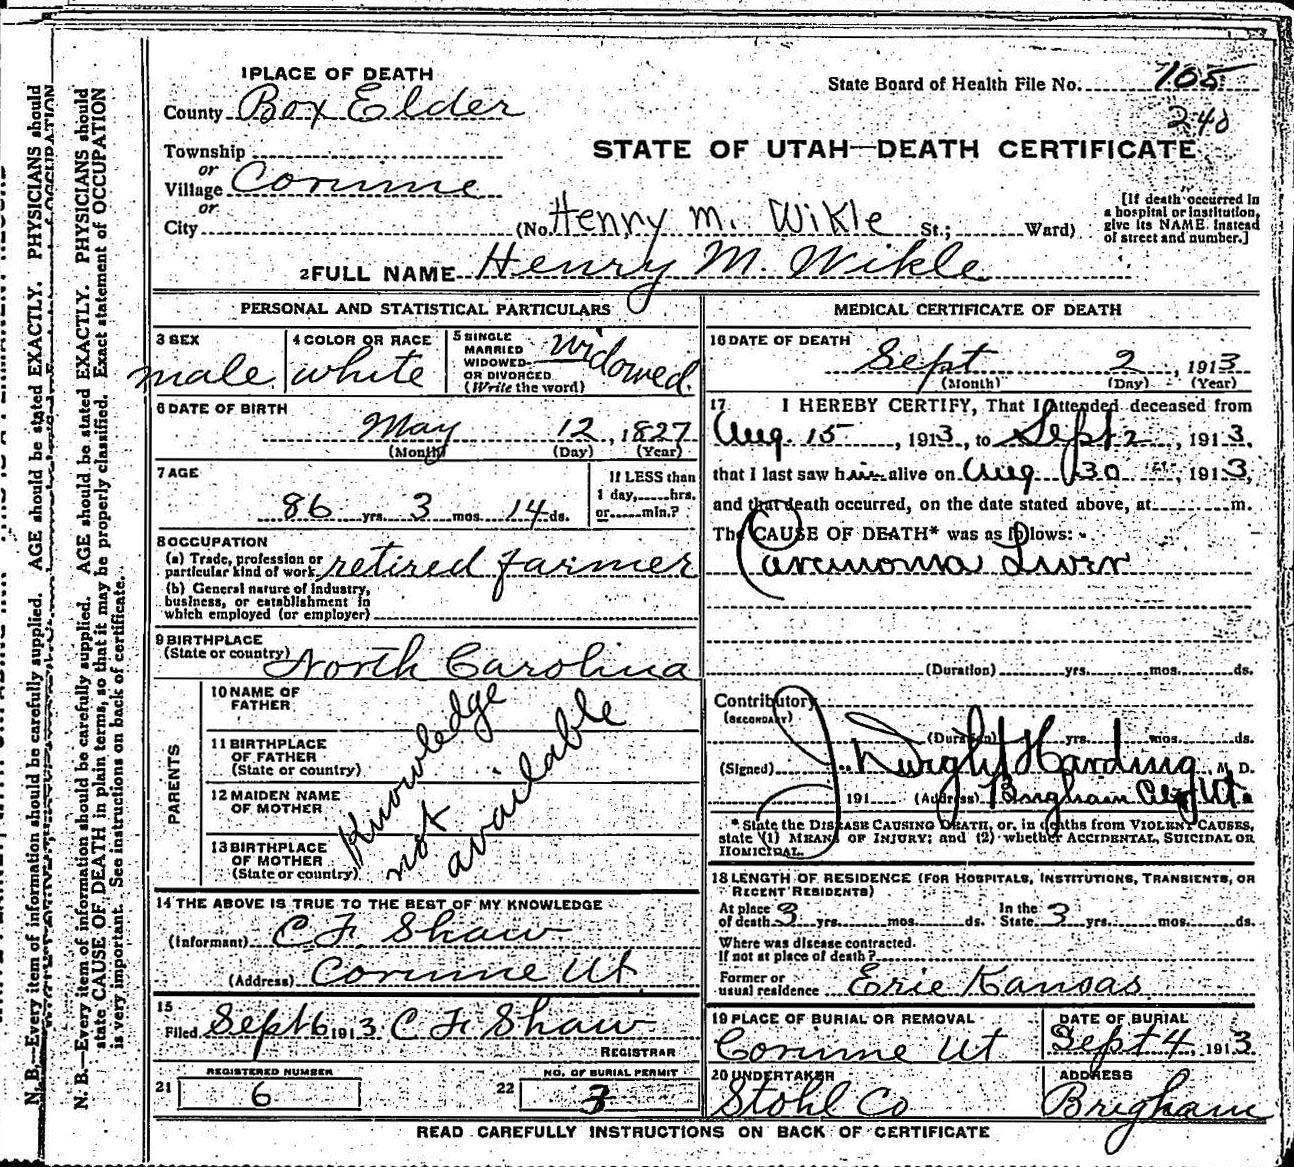 1 PLACE OF DEATH
County Box Elder
State Board of Health File No. 105
240
STATE OF UTAH—DEATH CERTIFICATE
Township
or
Village Corinne
or
City (No. Henry M. Wikle St.; Ward)
[If death occurred in
a hospital or institution,
give its NAME instead
of street and number.]
2 FULL NAME Henry M. Wikle
PERSONAL AND STATISTICAL PARTICULARS
3 SEX
male
4 COLOR OR RACE
white
5 SINGLE
MARRIED
WIDOWED
OR DIVORCED
(Write the word)
widowed
6 DATE OF BIRTH
May 12, 1827
(Month) (Day) (Year)
7 AGE
86 yrs. 3 mos. 14 ds.
If LESS than
1 day, hrs.
or min.?
8 OCCUPATION
(a) Trade, profession or
particular kind of work retired farmer
(b) General nature of industry,
business, or establishment in
which employed (or employer)
9 BIRTHPLACE
(State or country) North Carolina
PARENTS
10 NAME OF
FATHER
11 BIRTHPLACE
OF FATHER
(State or country)
12 MAIDEN NAME
OF MOTHER
13 BIRTHPLACE
OF MOTHER
(State or country)
Knowledge
not
available
14 THE ABOVE IS TRUE TO THE BEST OF MY KNOWLEDGE
(Informant) C F Shaw
(Address) Corinne Ut
15
Filed Sept 6 1913 C F Shaw
REGISTRAR
21 REGISTERED NUMBER
6
22 NO. OF BURIAL PERMIT
3
MEDICAL CERTIFICATE OF DEATH
16 DATE OF DEATH
Sept 2, 1913
(Month) (Day) (Year)
17 I HEREBY CERTIFY, That I attended deceased from
Aug. 15, 1913, to Sept 2, 1913.
that I last saw him alive on Aug 30, 1913,
and that death occurred, on the date stated above, at m.
The CAUSE OF DEATH* was as follows:
Carcinoma Liver
(Duration) yrs. mos. ds.
Contributory
(SECONDARY)
(Duration) yrs. mos. ds.
(Signed) J. Dwight Harding M. D.
191 (Address) Brigham City Ut.
* State the DISEASE CAUSING DEATH, or, in deaths from VIOLENT CAUSES,
state (1) MEANS OF INJURY; and (2) whether ACCIDENTAL, SUICIDAL OR
HOMICIDAL.
18 LENGTH OF RESIDENCE (FOR HOSPITALS, INSTITUTIONS, TRANSIENTS, OR
RECENT RESIDENTS)
At place
of death 3 yrs. mos. ds.
In the
State 3 yrs. mos. ds.
Where was disease contracted.
If not at place of death?
Former or
usual residence Erie Kansas
19 PLACE OF BURIAL OR REMOVAL
Corinne Ut
DATE OF BURIAL
Sept 4, 1913
20 UNDERTAKER
Stohl Co
ADDRESS
Brigham
READ CAREFULLY INSTRUCTIONS ON BACK OF CERTIFICATE
N. B.—Every item of information should be carefully supplied. AGE should be stated EXACTLY. PHYSICIANS should
N. B.—Every item of information should be carefully supplied. AGE should be stated EXACTLY. PHYSICIANS should
state CAUSE OF DEATH in plain terms, so that it may be properly classified. Exact statement of OCCUPATION
is very important. See instructions on back of certificate.